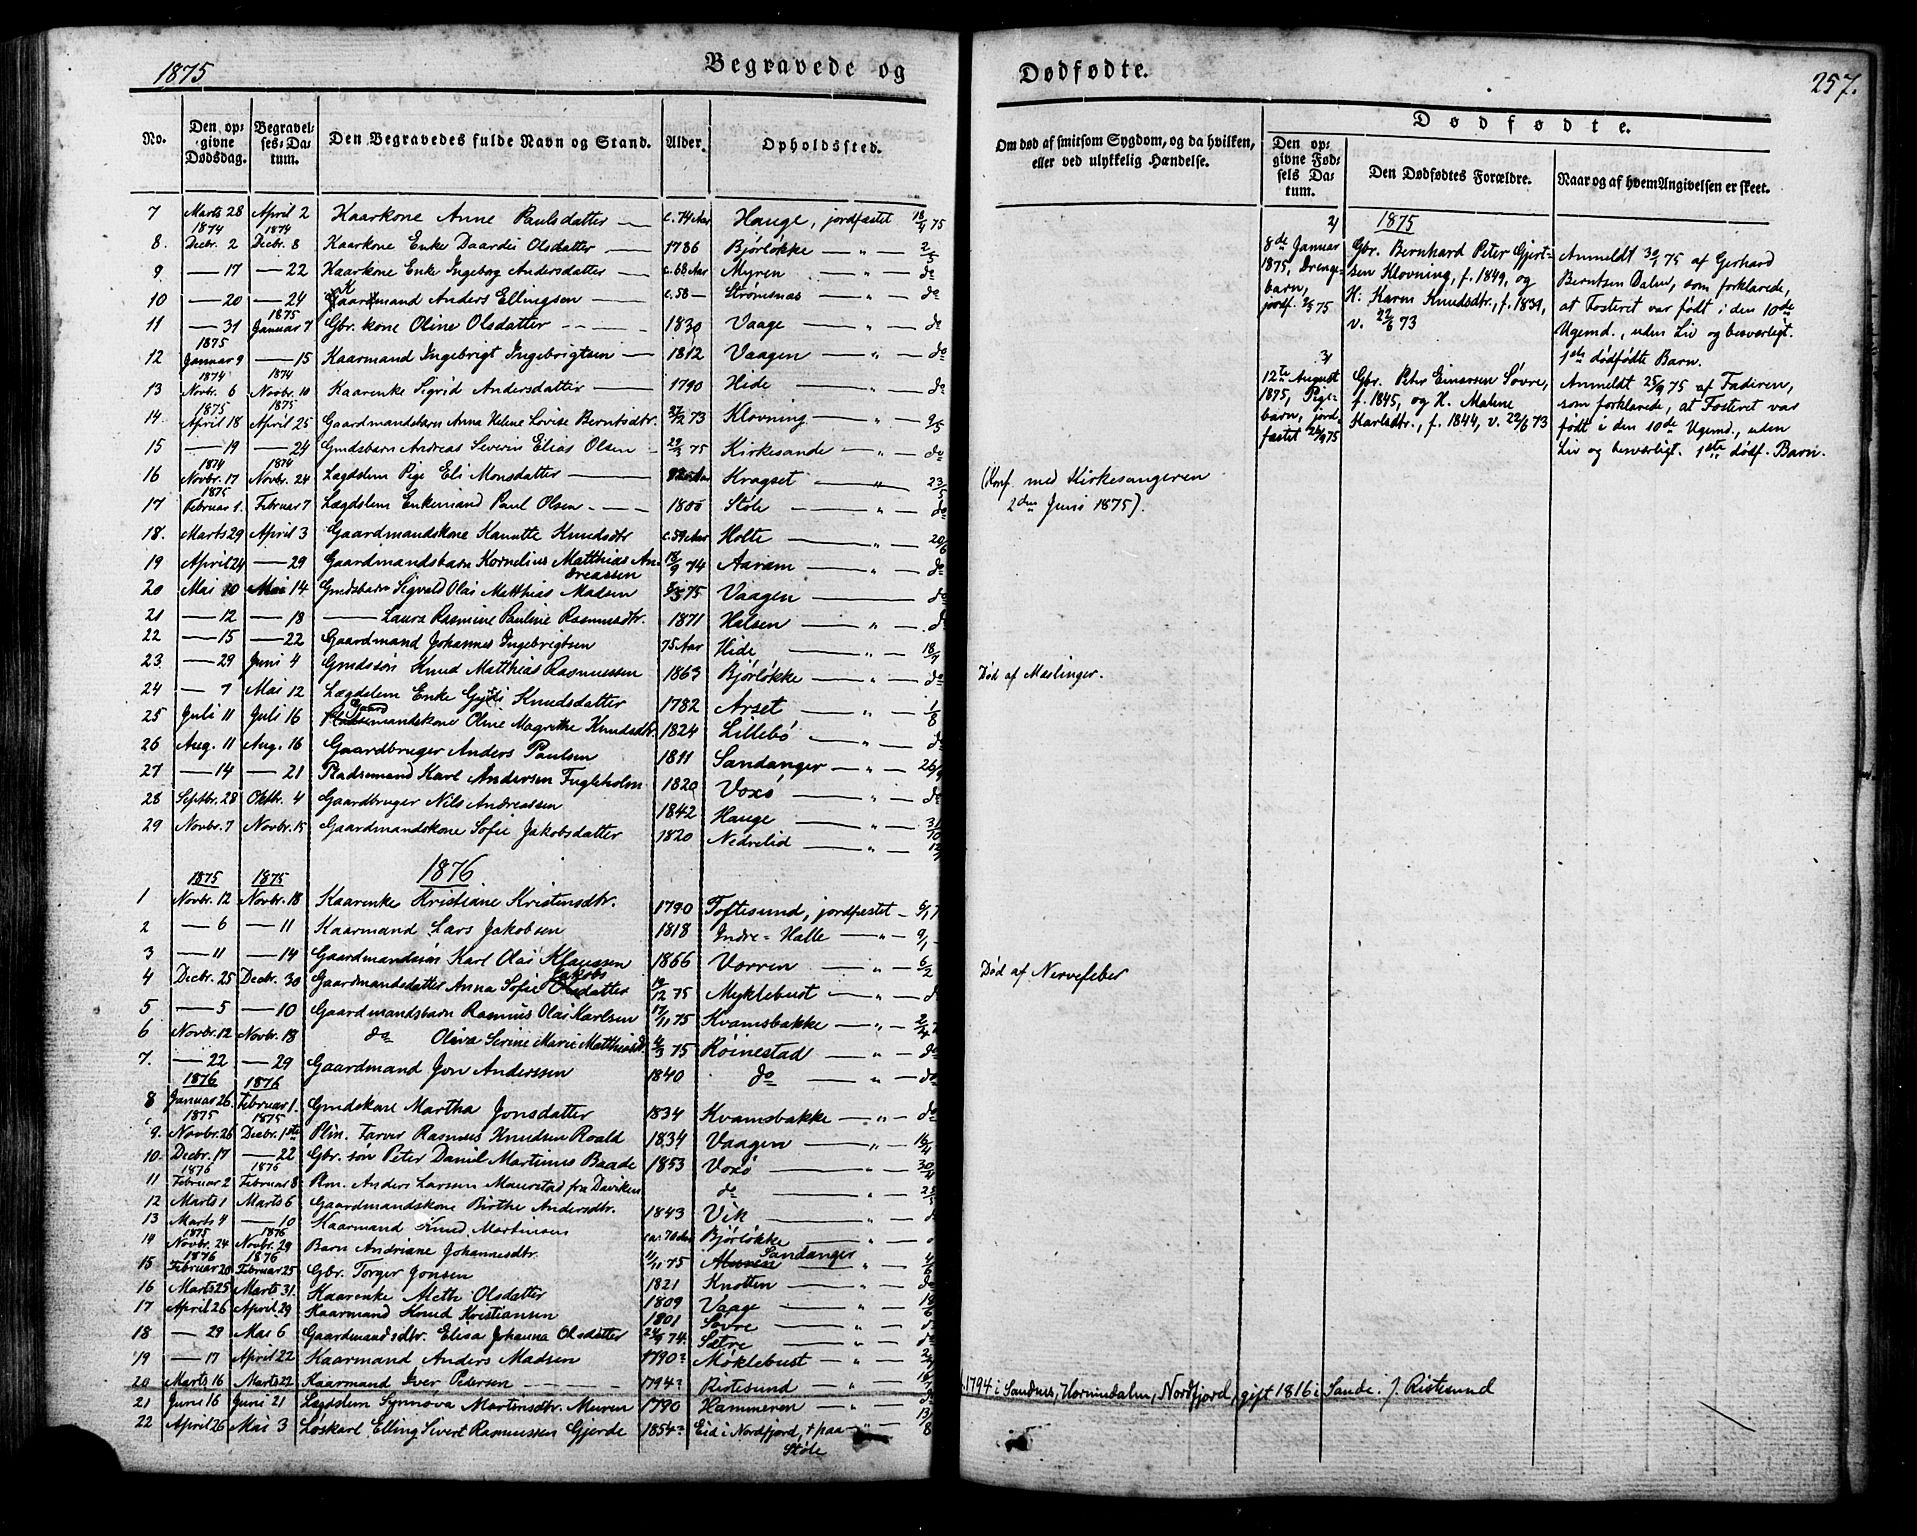 1875
Begravede og
Dødfødte.
257.
No.
Den opgivne Dødsdag.
Begravelses-Datum.
Den Begravedes fulde Navn og Stand.
Alder.
Opholdssted.
Om død af smitsom Sygdom, og da hvilken, eller ved ulykkelig Hændelse.
Dødfødte.
Den opgivne Fødsels Datum.
Den Dødfødtes Forældre.
Naar og af hvem Angivelsen er skeet.
7 Marts 28 April 2 Kaarkone Anne Paulsdatter c. 74 Aar Hauge, jordfæstet 18/4 75
1874 1874
8. Decbr. 2 Decbr. 8 Kaarkone Enke Daardei Olsdatter 1786 Bjørløkke — " — 2/5
9 — 17 — 22 Kaarkone Enke Ingebog Andersdatter c. 68 Aar Myren — " — do
10 — 20 — 24 Kaarmand Anders Ellingsen c. 58 — Strømsnæs — " — do
1875
11 — 31 Januar 7 Gbr. kone Oline Olsdatter 1830 Vaage — " — do
1875
12 Januar 9 — 15 Kaarmand Ingebrigt Ingebrigtsen 1812 Vaagen — " — do
1874 1874
13 Novbr. 6 Novbr. 10 Kaarenke Sigrid Andersdatter 1790 Hide — " — do
1875 1875
14. April 18 April 25 Gaardmandsbarn Anna Helene Lovise Berntsdtr. /12 73 Klovning — " — 9/5
15 — 19 — 24 Gmdsbarn Andreas Severin Elias Olsen 75 Kirkesande — " — do
1874 1874
16 Novbr. 17 Novbr. 24 Lægdslem Pige Eli Monsdatter Kragset — " — 23/5
1875
17 Februar 1. Februar 7 Lægdslem Enkemand Paul Olsen 1800 Støle — " — do
18. Marts 29 April 3 Gaardmandskone Hanutte Knudsdtr c. 59 Aar Holte — " — 20/6
19 April 24 — 29 Gaardmandsbarn Kornelius Matthias Andreassen 18/9 74 Aaram — " — do
20 Mai 10 Mai 14 Gmdsbarn Sigvald Olai Matthias Madsen 75 Vaagen — " — do
21 — 12 — 18 — Laura Rasmine Pauline Rasmusdtr. 1871 Halsen — " — do
22 — 15 — 22 Gaardmand Johannes Ingebrigtsen 75 Aar Hide — " — 18/7
23. — 29 Juni 4 Gmdssøn Knud Matthias Rasmussen 1863 Bjørløkke — " — do
24 — 7 Mai 12 Lægdslem Enke Gjødi Knudsdatter 1782 Arset — " — 1/8
25 Juli 11 Juli 16 Gaardmandskone Oline Magrethe Knudsdtr. 1824 Lillebø — " — do
26 Aug. 11 Aug. 16 Gaardbruger Anders Paulsen 1811 Sandanger — " — 26/9
27 — 14 — 21 Pladsemand Karl Andersen Fugleholm 1820 Voxø — " — do
28 Septbr. 28 Oktbr. 4 Gaardbruger Nils Andreassen 1842 Hauge — " — 31/10
29 Novbr. 7 Novbr. 15 Gaardmandskone Sofie Jakobsdatter 1820 Nedrelid — " —
1876
1875 1875
1 Novbr. 12 Novbr. 18 Kaarenke Kristiane Kristensdtr. 1790 Toftesund, jordfæstet — 6/1
2 — 6 — 11 Kaarmand Lars Jakobsen 1818 Indre-Halle — " — 9/1
3 — 11 — 14 Gaardmandssøn Karl Olai Klaussen 1866 Vorren — " — 6/2
4 Decbr. 25 Decbr. 30 Gaardmandsdatter Anna Sofie Jakobs Olsdatter /12 75 Myklebust — " — do
5 — 5 — 10 Gaardmandsbarn Rasmus Olai Karlsen 17/11 75 Kvamsbakke — " — 2/4
6 Novbr. 12 Novbr. 18 do Oliva Serine Marie Matthiasd. 75 Røinestad — " — do
7. — 22 — 29 Gaardmand Jon Anderssen 1840 do — " — do
1876 1876
8 Januar 26. Februar 1. Gmdskone Martha Jonsdatter 1834 Kvamsbakke — " — do
1875 1875
9. Novbr. 26 Decbr. 1ste Plm. Farver Rasmus Knudsen Roald 1834 Vaagen — " — 16/4
10. Decbr. 17 — 22 Gbr. søn Peter Danil Martinus Baade 1853 Voxø — " — 30/4
1876 1876
11 Februar 2 Februar 8 Plm. Anders Larsen Maurstad fra Daviken do — " —
12 Marts 1 Marts 6 Gaardmandskone Birthe Andersdtr. 1843 Vik — " — do
13 Marts 4 — 10 Kaarmand Knud Martinsen ca. 70 Aar Bjørløkke
1875 1876
14 Novbr. 24 Novbr. 29 Barn Andriane Johannesdtr. /11 75 Sandanger — " — 4/6
1876 1876
15 Februar 20 Februar 25 Gbr. Torger Jonsen 1821 Knotten — " — do
16 Marts 25 Marts 31. Kaarenke Aleth Olsdatter 1809 Vaage — " — 18/6
17 April 26 April 29 Kaarmand Knud Kristiansen 1801 Søvre — " — do
18 — 29 Mai 6 Gaardmandsdtr. Elisa Johanna Olsdatter 24/9 74. Sætre — " — do
19 — 17 April 22 Kaarmand Anders Madsen 1790 Møklebust — " —
20 Marts 16 Marts 22 Kaarmand Iver Pedersen 1794 Ristesund " —
21 Juni 16 Juni 21 Lægdslem Synnøva Martinsdtr. Muren 1790 Hammeren — " — do
22 April 26 Mai 3 Løskarl Elling Sivert Rasmussen Gjerde 1854 Eid i Nordfjord, + paa Støle 13/8
(Konf. med Kirkesangeren
2den Juni 1875).
Død af Mæslinger.
Død af Nervefeber
1794 i Sandnes, Hornindalen, Nordfjord, gift 1816 i Sande. J. Ristesund
2)
8de Januar
1875, Drengebarn,
jordf. 2/5 75
1875
Gbr. Bernhard Peter Gjertsen
Klovning, f. 1849, og
H. Karen Knudsdtr., f. 1839,
v. 22/6 73
Anmeldt 30/1 75 af Gerhard
Berntsen Dalen, som forklarede,
at Fosteret var født i den 10de
Ugemd., uden Liv og besværligt.
1ste dødfødte Barn.
3)
12te August
1875, Pigebarn,
jordfæstet 26/9 75
Gbr. Peter Einarsen Søvre,
f. 1845, og H. Malene
Karlsdtr., f. 1844, v. 22/6 73
Anmeldt 25/9 75 af Faderen,
som forklarede, at Fosteret var
født i den 10de Ugemd., uden
Liv og besværligt. 1ste dødf. Barn.